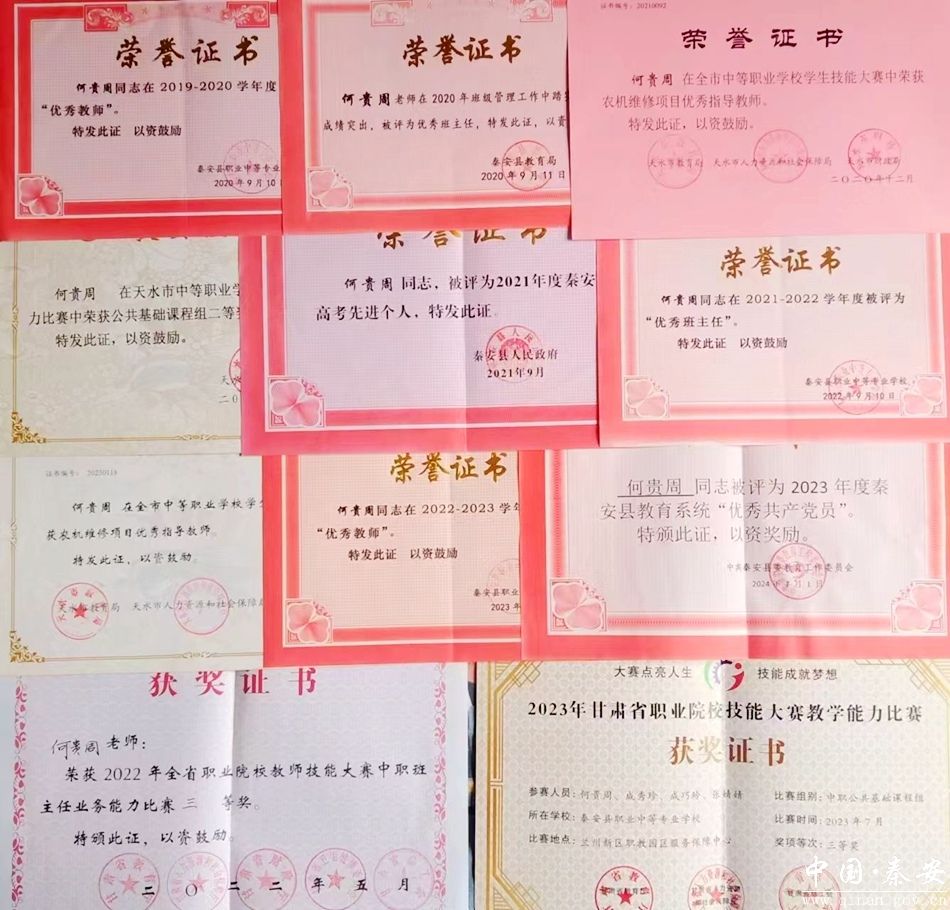 荣誉证书
何贵周同志在2019-2020学年度
“优秀教师”。
特发此证 以资鼓励
秦安县职业中等专业
2020年9月10
荣誉证书
何贵周老师在2020年班级管理工作中踏
成绩突出，被评为优秀班主任，特发此证，以资
秦安县教育局
2020年9月11日
证书编号：20210092
荣誉证书
何贵周 在全市中等职业学校学生技能大赛中荣获
农机维修项目优秀指导教师。
特发此证，以资鼓励。
天水市教育局 天水市人力资源和社会保障局 天水市财政局
二〇二〇年十二月
何贵周 在天水市中等职业学
力比赛中荣获公共基础课程组二等
特发此证，以资鼓励。
天水
二〇
荣誉证书
何贵周同志，被评为2021年度秦安
高考先进个人，特发此证。
秦安县人民政府
2021年9月
荣誉证书
何贵周同志在2021-2022学年度被评为
“优秀班主任”。
特发此证 以资鼓励
秦安县职业中等专业学校
2022年9月10日
证书编号：20230119
何贵周 在全市中等职业学校学生
获农机维修项目优秀指导教师。
特发此证，以资鼓励。
天水市教育局 天水市人力资源和社会保障局
荣誉证书
何贵周同志在2022-2023学年
“优秀教师”。
特发此证 以资鼓励
秦安县职业
2023年
何贵周 同志被评为2023年度秦
安县教育系统“优秀共产党员”。
特颁此证，以资奖励。
中共秦安县委教育工作委员会
2024年7月1日
获奖证书
何贵周老师：
荣获2022年全省职业院校教师技能大赛中职班
主任业务能力比赛 三 等奖。
特颁此证，以资鼓励。
二〇二二年五月
大赛点亮人生 技能成就梦想
2023年甘肃省职业院校技能大赛教学能力比赛
获奖证书
参赛人员：何贵周、成秀珍、成巧玲、张婧婧
比赛组别：中职公共基础课程组
所在学校：秦安县职业中等专业学校
比赛时间：2023年7月
比赛地点：兰州新区职教园区服务保障中心
奖项等次：三等奖
中国·秦安
www.qinan.gov.cn